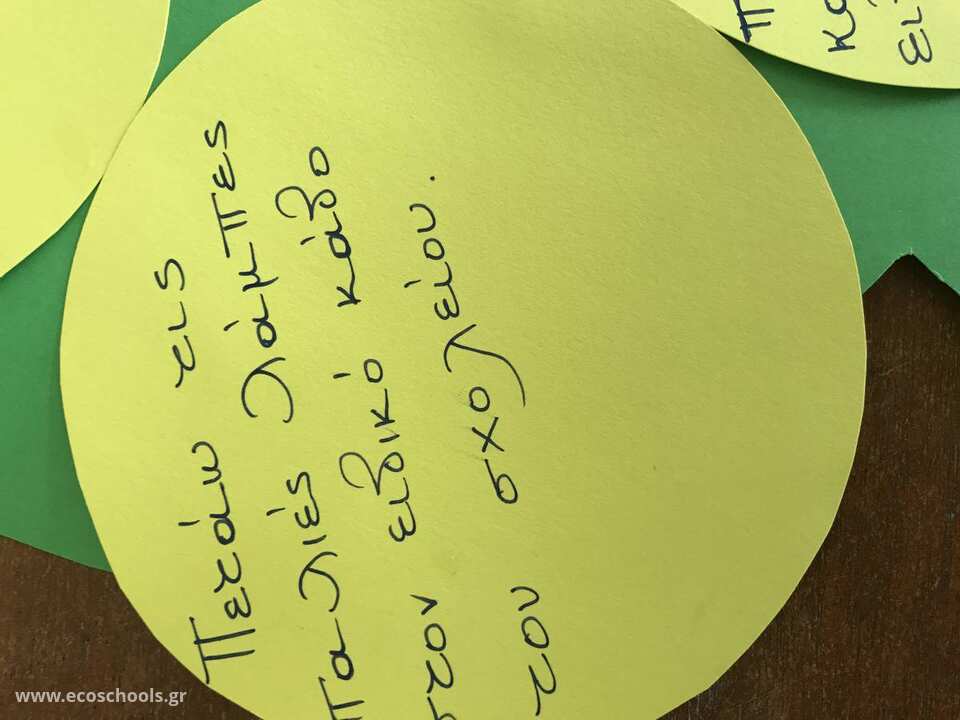 Πετάω τις
παλιές λάμπες
στον ειδικό κάδο
του σχολείου.
www.ecoschools.gr